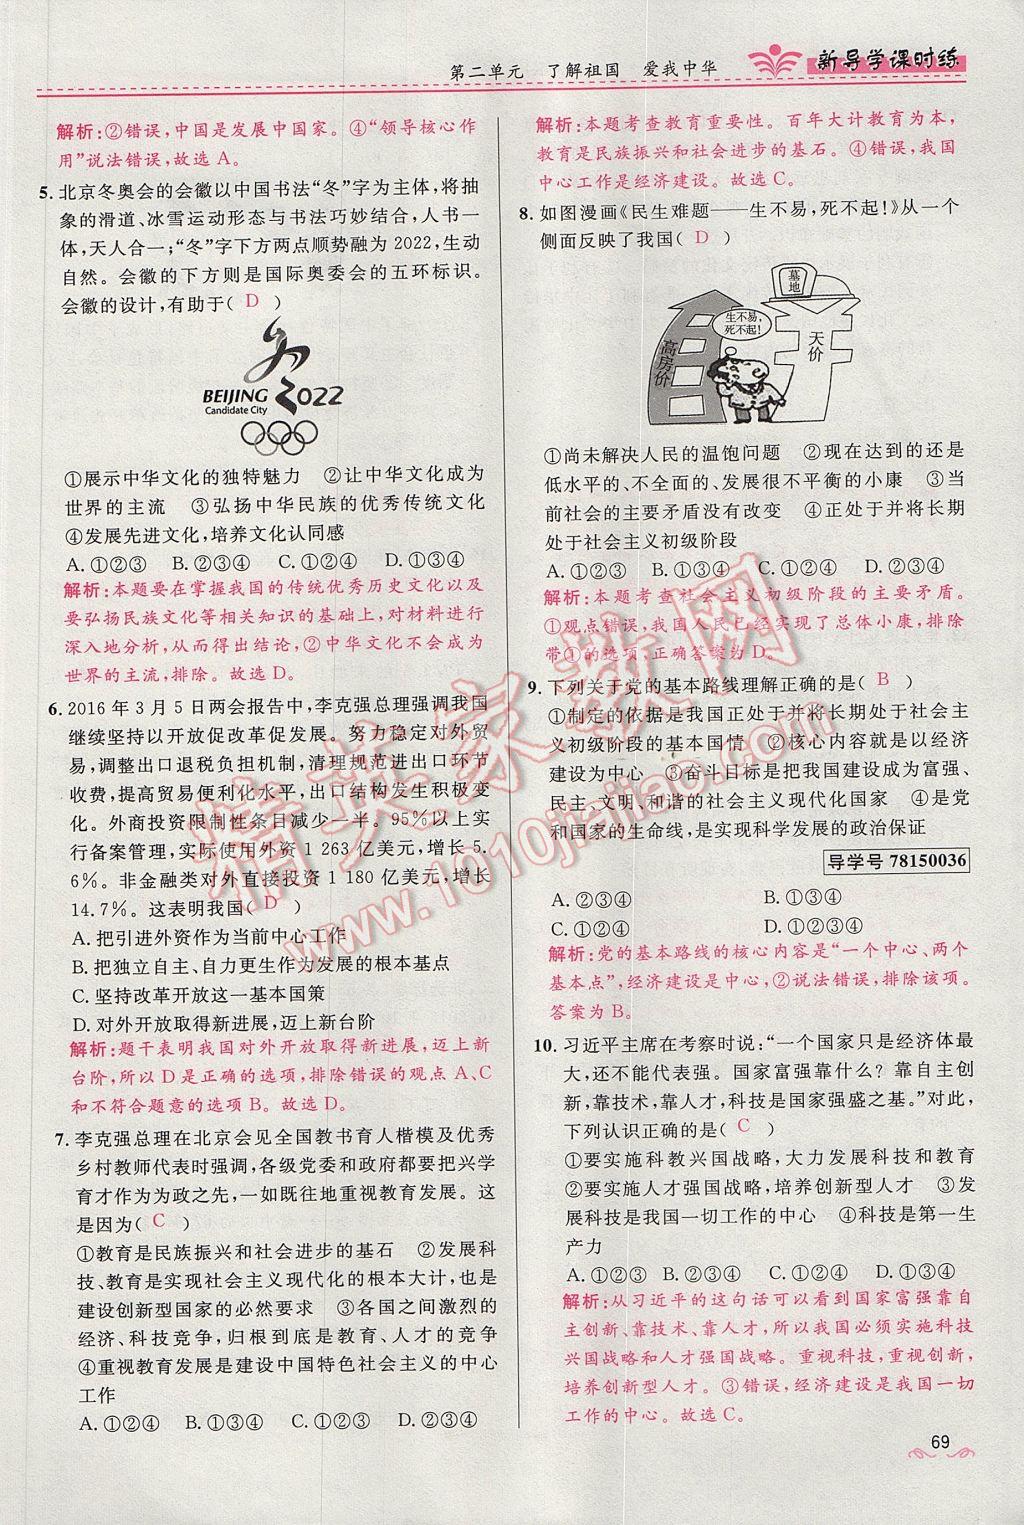 第二单元　了解祖国　爱我中华
新导学课时练
解析:②错误,中国是发展中国家。④“领导核心作
用”说法错误,故选 A。
5. 北京冬奥会的会徽以中国书法“冬”字为主体,将抽
象的滑道、冰雪运动形态与书法巧妙结合,人书一
体,天人合一;“冬”字下方两点顺势融为 2022,生动
自然。会徽的下方则是国际奥委会的五环标识。
会徽的设计,有助于( D )
BEIJING 2022
Candidate City
①展示中华文化的独特魅力　②让中华文化成为
世界的主流　③弘扬中华民族的优秀传统文化
④发展先进文化,培养文化认同感
A. ①②③　B. ②③④　C. ①②④　D. ①③④
解析:本题要在掌握我国的传统优秀历史文化以及
要弘扬民族文化等相关知识的基础上,对材料进行
深入地分析,从而得出结论,②中华文化不会成为
世界的主流,排除。故选 D。
6. 2016 年 3 月 5 日两会报告中,李克强总理强调我国
继续坚持以开放促改革促发展。努力稳定对外贸
易,调整出口退税负担机制,清理规范进出口环节
收费,提高贸易便利化水平,出口结构发生积极变
化。外商投资限制性条目减少一半。95%以上实
行备案管理,实际使用外资 1 263 亿美元,增长 5.
6%。非金融类对外直接投资 1 180 亿美元,增长
14.7%。这表明我国( D )
A. 把引进外资作为当前中心工作
B. 把独立自主、自力更生作为发展的根本基点
C. 坚持改革开放这一基本国策
D. 对外开放取得新进展,迈上新台阶
解析:题干表明我国对外开放取得新进展,迈上新
台阶,所以 D 是正确的选项,排除错误的观点 A、C
和不符合题意的选项 B。故选 D。
7. 李克强总理在北京会见全国教书育人楷模及优秀
乡村教师代表时强调,各级党委和政府都要把兴学
育才作为为政之先,一如既往地重视教育发展。这
是因为( C )
①教育是民族振兴和社会进步的基石　②发展科
技、教育是实现社会主义现代化的根本大计,也是
建设创新型国家的必然要求　③各国之间激烈的
经济、科技竞争,归根到底是教育、人才的竞争
④重视教育发展是建设中国特色社会主义的中心
工作
A. ①②④　B. ①③④　C. ①②③　D. ②③④
解析:本题考查教育重要性。百年大计教育为本,
教育是民族振兴和社会进步的基石。④错误,我国
中心工作是经济建设。故选 C。
8. 如图漫画《民生难题——生不易,死不起!》从一个
侧面反映了我国( D )
墓地
生不易,
死不起!
高房价
天价
①尚未解决人民的温饱问题　②现在达到的还是
低水平的、不全面的、发展很不平衡的小康　③当
前社会的主要矛盾没有改变　④正处于并将长期
处于社会主义初级阶段
A. ①②③　B. ①③④　C. ①②④　D. ②③④
解析:本题考查社会主义初级阶段的主要矛盾。
①观点错误,我国人民已经实现了总体小康,排除
带①的选项,正确答案为 D。
9. 下列关于党的基本路线理解正确的是( B )
①制定的依据是我国正处于并将长期处于社会主
义初级阶段的基本国情　②核心内容就是以经济
建设为中心　③奋斗目标是把我国建设成为富强、
民主、文明、和谐的社会主义现代化国家　④是党
和国家的生命线,是实现科学发展的政治保证
导学号 78150036
A. ②③④　B. ①③④
C. ①②④　D. ①②③
解析:党的基本路线的核心内容是“一个中心、两个
基本点”,经济建设是中心,②说法错误,排除该项。
答案为 B。
10. 习近平主席在考察时说:“一个国家只是经济体最
大,还不能代表强。国家富强靠什么?靠自主创
新,靠技术,靠人才,科技是国家强盛之基。”对此,
下列认识正确的是( C )
①要实施科教兴国战略,大力发展科技和教育
②要实施人才强国战略,培养创新型人才　③发
展科技是我国一切工作的中心　④科技是第一生
产力
A. ①②③　B. ①③④　C. ①②④　D. ②③④
解析:从习近平的这句话可以看到国家富强靠自
主创新、靠技术、靠人才,所以我国必须实施科技
兴国战略和人才强国战略。重视科技,重视创新,
培养创新型人才。③错误,经济建设是我国一切
工作的中心。故选 C。
69
精英家教网
www.1010jiajiao.com